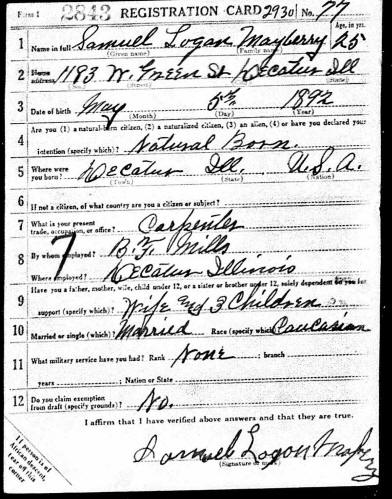 Form 1 2843 REGISTRATION CARD 2930 No. 77
1 Name in full Samuel Logan Mayberry Age, in yrs. 25
(Given name) (Family name)
2 Home address 1193 W. Green St Decatur Ill
(No.) (Street) (State)
3 Date of birth May 5th 1892
(Month) (Day) (Year)
4 Are you (1) a natural-born citizen, (2) a naturalized citizen, (3) an alien, (4) or have you declared your
intention (specify which)? Natural Born.
5 Where were you born? Decatur Ill. U.S.A.
(Town) (State) (Nation)
6 If not a citizen, of what country are you a citizen or subject?
7 What is your present trade, occupation, or office? Carpenter
8 By whom employed? B.F. Mills
Where employed? Decatur Illinois
9 Have you a father, mother, wife, child under 12, or a sister or brother under 12, solely dependent on you for
support (specify which)? Wife and 3 Children
10 Married or single (which)? Married Race (specify which)? Caucasian
11 What military service have you had? Rank None ; branch
years ; Nation or State
12 Do you claim exemption from draft (specify grounds)? No.
I affirm that I have verified above answers and that they are true.
Samuel Logan
(Signature or mark)
If person is of
African descent,
tear off this
corner